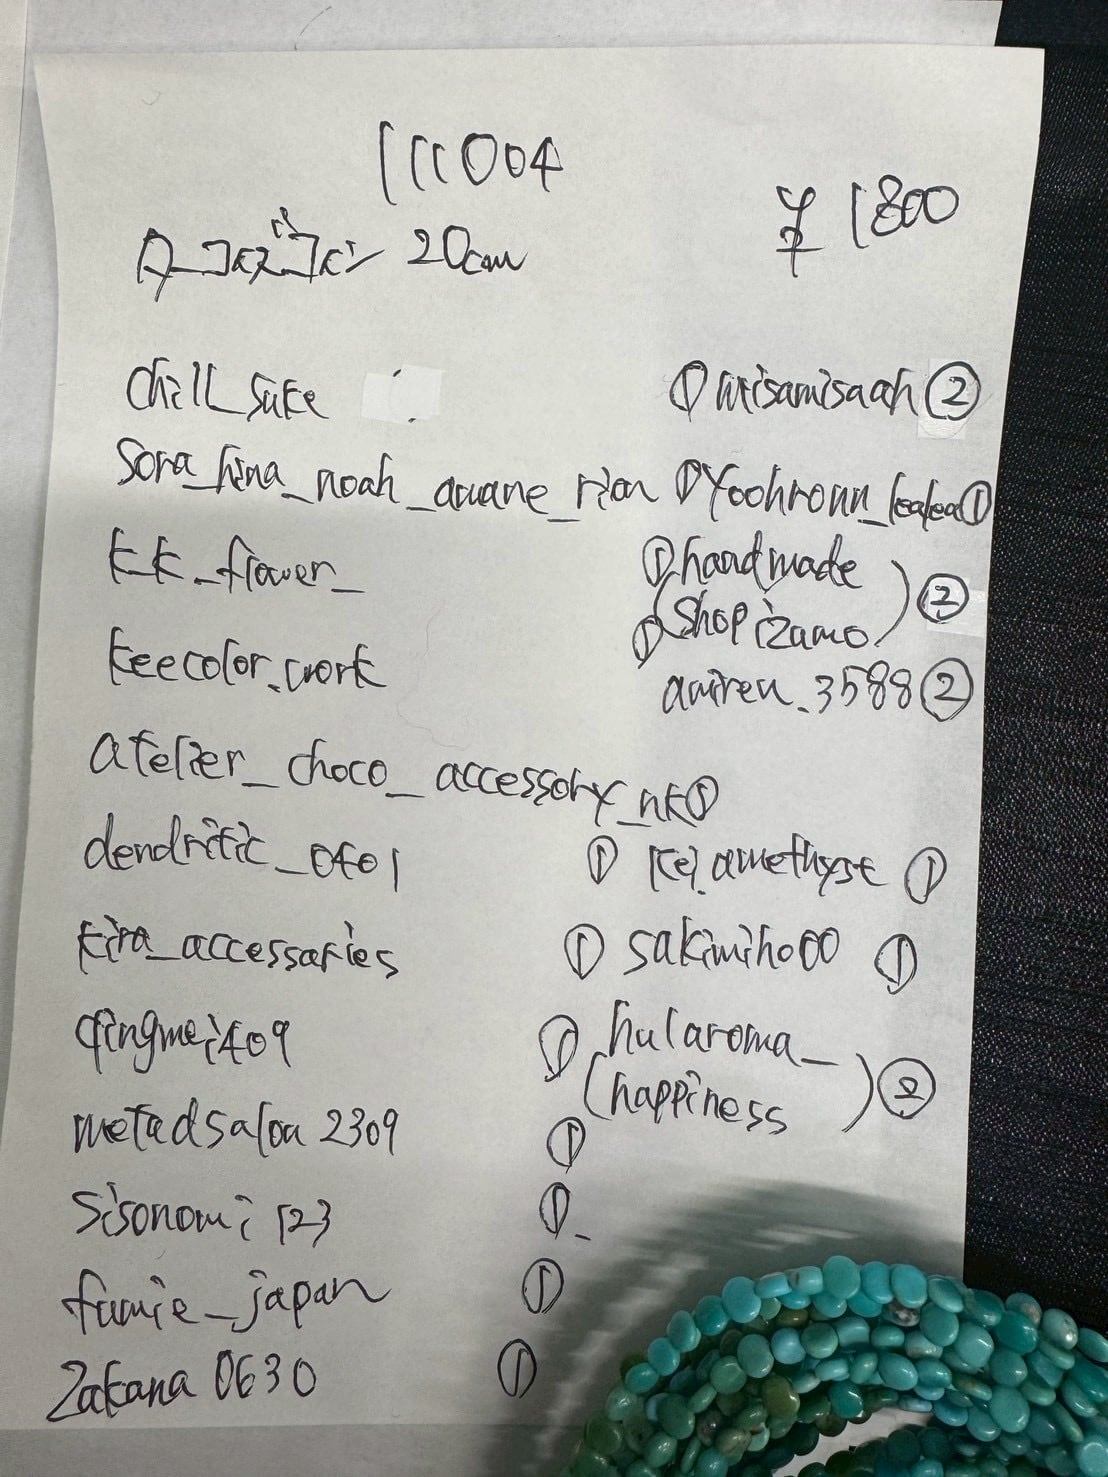 111004
¥1800
20cm
chill_sake
① misamisaah ②
sora_hina_noah_amane_rion ① Yoohronn_lealea ①
kk_flower_ ①
handmade
(shop izamo) ②
keecolor.work ①
amiren_3588 ②
atelier_choco_accessory_nk ①
dendritic_0401 ①
kei_amethyst ①
kira_accessaries ①
sakimiho00 ①
qingmei409 ①
hularoma_
(happiness) ②
metadsaloa2309 ①
sisonomi123 ①
fumie_japan ①
zakana0630 ①